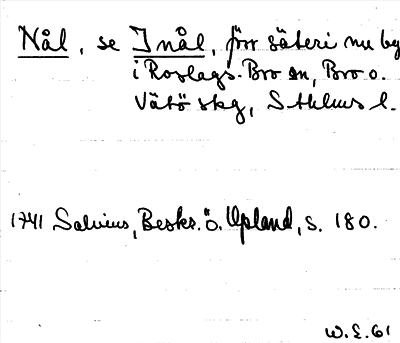 Nål, se Inål, förr säteri nu by
i Roslags-Bro sn, Bro o.
Vätö skg, Sthlms l.
1741 Salvius, Beskr. ö. Upland, s. 180.
W.E.61